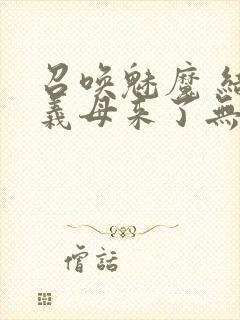 召喚魅魔 結
義母來了無
僧話